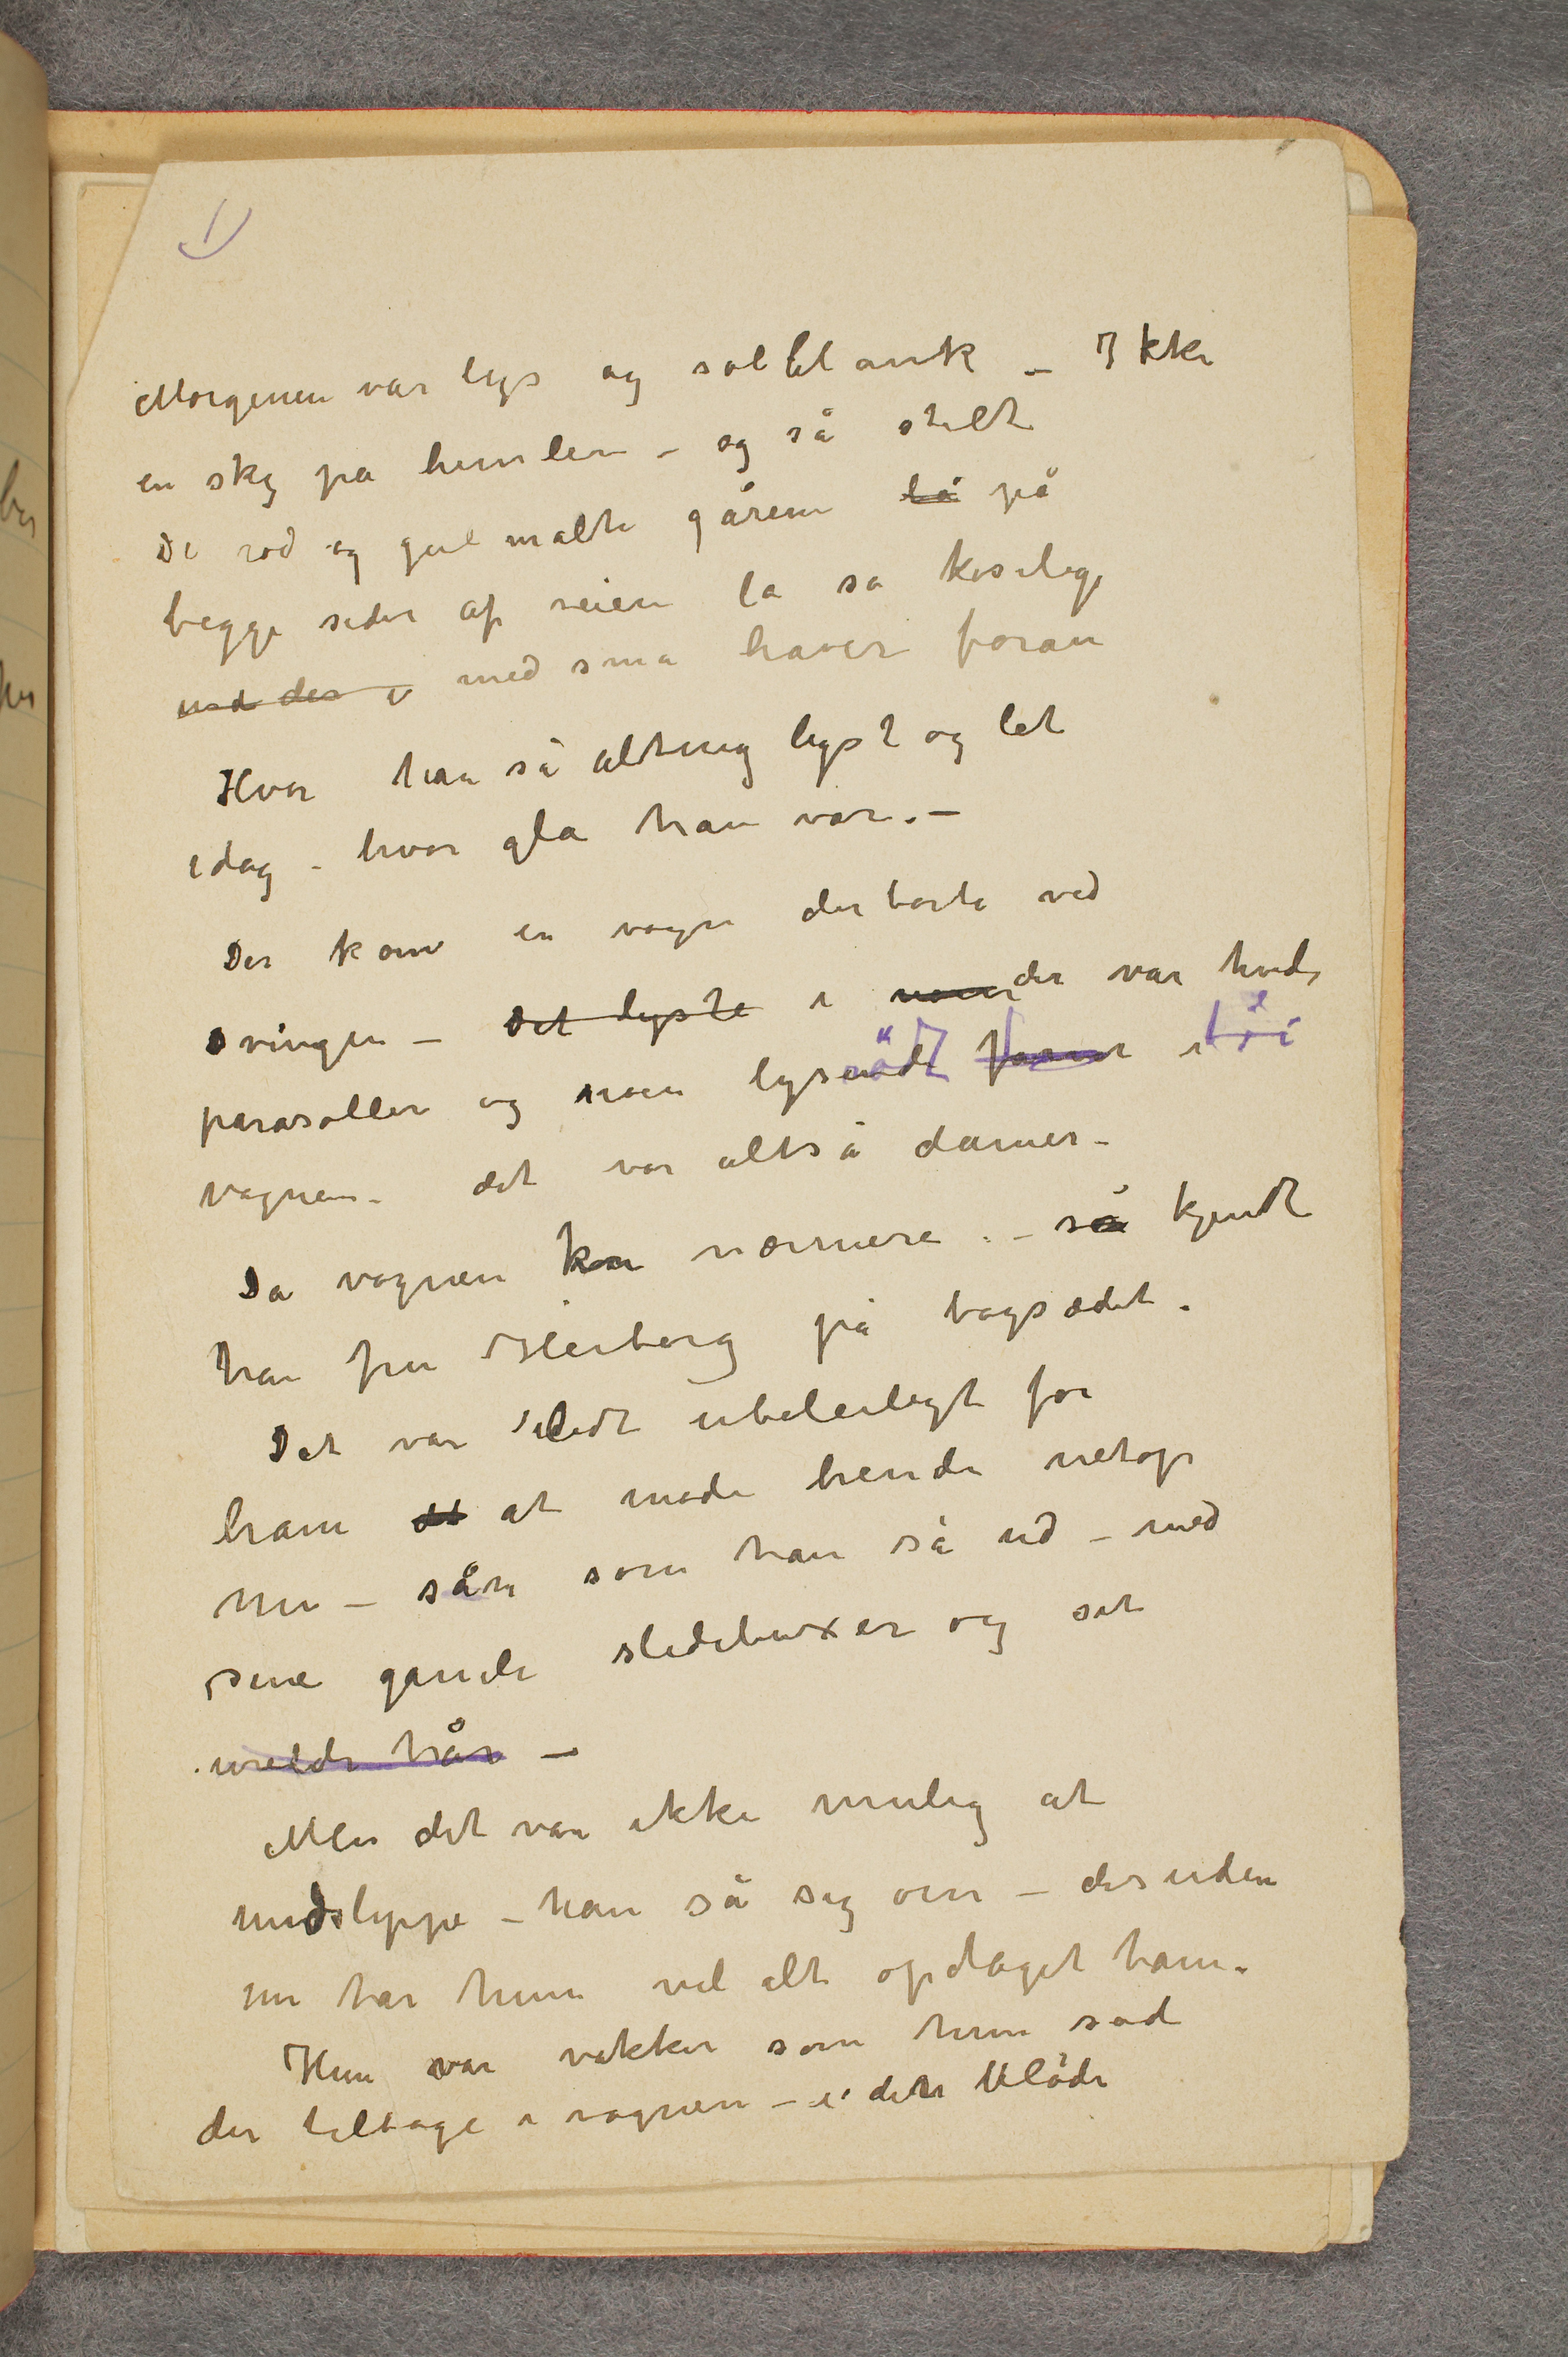 1)
Morgenen var lys og solblank – Ikke
en sky på himlen – og så stilt
De rød og gul malte gårene lå på
begge sider af veien lå så koselige
med små haver foran
Hvor han så alting lyst og let
idag – hvor gla han var. –
Der kom en vagn derborte ved
svingen – Det lyste i noen der var hvide
parasoller og noen lysrödt farver i töi
vagnen – det var altså damer –
Da vagnen kom nærmere . – så kjendte
han fru Heiberg på bagsædet .
Det var lidt ubeleiligt for
ham at møde hende netop
nu – sån som han så ud – med
sine gamle slidebuxer og sit
uveldi hår –
Men det var ikke mulig at
undslippe – han så sig om – desuden
nu har hun vel alt opdaget ham.
Hun var vakker som hun sad
der tilbage i vagnen – i den blöde